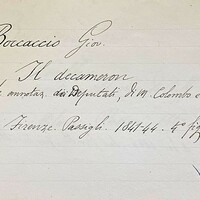 Boccaccio Giov.
Il decameron
annotaz. dei Deputati, di M. Colombo e
Firenze. Passigli. 1841-44. 4° fig